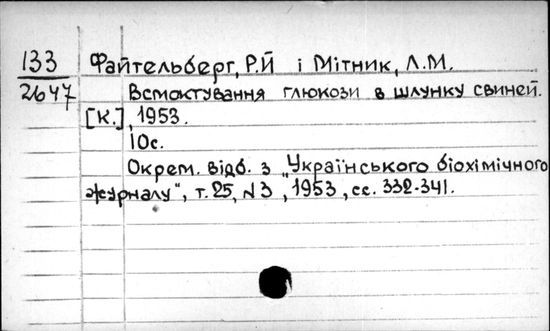 133 Файтельберг, Р.Й і Мітник, Л.М.
2647 Всмоктування глюкози в шлунку свиней.
[К.], 1953.
10с.
Окрем. відб. з „Українського біохімічного
журналу", т. 25, N3, 1953, сс. 332-341.